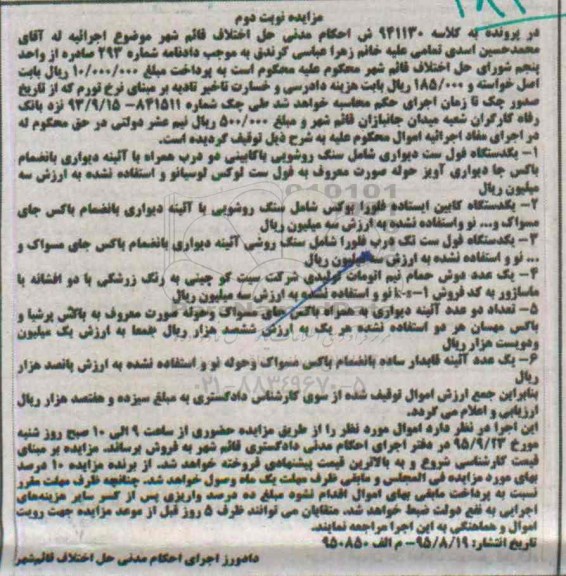 مزایده نوبت دوم
در پرونده به کلاسه ۹۴۱۱۳۰ ش احکام مدنی حل اختلاف قائم شهر موضوع اجرائیه له آقای
محمدحسین اسدی تمامی علیه خانم زهرا عباسی کرندق به موجب دادنامه شماره ۲۹۳ صادره از واحد
پنجم شورای حل اختلاف قائم شهر محکوم علیه محکوم است به پرداخت مبلغ ۱۰/۰۰۰/۰۰۰ ریال بابت
اصل خواسته و ۱۸۵/۰۰۰ ریال بابت هزینه دادرسی و خسارت تاخیر تادیه بر مبنای نرخ تورم که از تاریخ
صدور چک تا زمان اجرای حکم محاسبه خواهد شد طی چک شماره ۸۴۱۵۱۱- ۹۳/۹/۱۵ نزد بانک
رفاه کارگران شعبه میدان جانبازان قائم شهر و مبلغ ۵۰۰/۰۰۰ ریال نیم عشر دولتی در حق محکوم له
در اجرای مفاد اجرائیه اموال محکوم علیه به شرح ذیل توقیف گردیده است.
۱- یکدستگاه فول ست دیواری شامل سنگ روشویی باکابینی دو درب همراه با آئینه دیواری بانضمام
باکس جا دیواری آویز حوله صورت معروف به فول ست لوکس لوسیانو و استفاده نشده به ارزش سه
میلیون ریال
۲- یکدستگاه کابین ایستاده فلورا بوکس شامل سنگ روشویی با آئینه دیواری بانضمام باکس جای
مسواک و... نو واستفاده نشده به ارزش سه میلیون ریال
۳- یکدستگاه فول ست تک درب فلورا شامل سنگ روشی آئینه دیواری بانضمام باکس جای مسواک و
... نو و استفاده نشده به ارزش سه میلیون ریال
۴- یک عدد دوش حمام نیم اتومات تولیدی شرکت سیت کو چینی به رنگ زرشکی با دو افشانه با
ماساژور به کد فروش s-۱ نو و استفاده نشده به ارزش سه میلیون ریال
۵- تعداد دو عدد آئینه دیواری به همراه باکس جای مسواک وحوله صورت معروف به باکس پرشیا و
باکس مهسان هر دو استفاده نشده هر یک به ارزش ششصد هزار ریال جمعا به ارزش یک میلیون
ودویست هزار ریال
۶- یک عدد آئینه قابدار ساده بانضمام باکس مسواک وحوله نو و استفاده نشده به ارزش پانصد هزار
ریال
بنابراین جمع ارزش اموال توقیف شده از سوی کارشناس دادگستری به مبلغ سیزده و هفتصد هزار ریال
ارزیابی و اعلام می گردد.
این اجرا در نظر دارد اموال مورد نظر را از طریق مزایده حضوری از ساعت ۹ الی ۱۰ صبح روز شنبه
مورخ ۹۵/۹/۲۳ در دفتر اجرای احکام مدنی دادگستری قائم شهر به فروش برساند. مزایده بر مبنای
قیمت کارشناسی شروع و به بالاترین قیمت پیشنهادی فروخته خواهد شد. از برنده مزایده ۱۰ درصد
بهای مورد مزایده فی المجلس و مابقی ظرف مهلت یک ماه وصول خواهد شد. چنانچه ظرف مهلت مقرر
نسبت به پرداخت مابقی بهای اموال اقدام نشود مبلغ ده درصد واریزی پس از کسر سایر هزینه‌های
اجرایی به نفع دولت ضبط خواهد شد. متقاضیان می توانند ظرف ۵ روز قبل از موعد مزایده جهت رویت
اموال و هماهنگی به این اجرا مراجعه نمایند.
تاریخ انتشار: ۹۵/۸/۱۹- م الف ۹۵۰۸۵۰
دادورز اجرای احکام مدنی حل اختلاف قائم‌شهر
۰۲۱-۸۸۳۴۹۶۷۰-۵